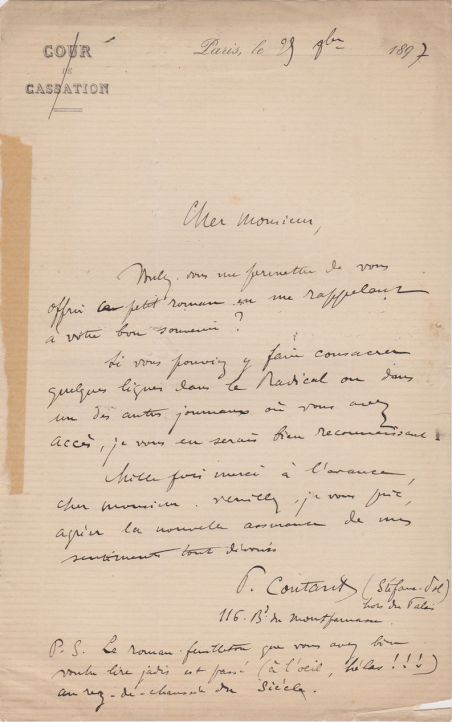 COUR
DE
CASSATION
Paris, le 25 9bre 1897
Cher Monsieur,
Voulez-vous me permettre de vous
offrir ce petit roman en me rappelant
à votre bon souvenir ?
Si vous pouviez y faire consacrer
quelques lignes dans le Radical ou dans
un des autres journaux où vous avez
accès, je vous en serais bien reconnaissant.
Mille fois merci à l'avance,
cher monsieur. Veuillez, je vous prie,
agréer la nouvelle assurance de mes
sentiments tout dévoués
P. Coutant (Stéfane-Pol)
hors du Palais
116. Bd de Montparnasse.
P.S. Le roman-feuilleton que vous avez bien
voulu lire jadis est passé (à l'oeil, hélas !!!)
au rez-de-chaussée du Siècle.